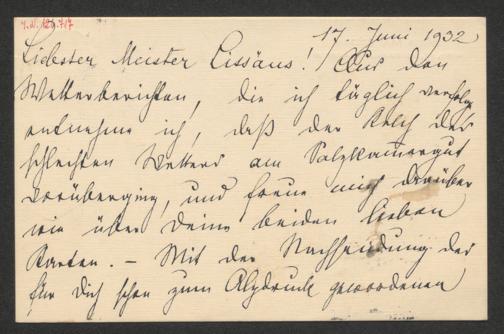 I.N. 129.717
17. Juni 1932
Liebster Meister Lissäus! Aus den
Wetterberichten, die ich täglich verfolge
entnehme ich, daß der Kelch des
schlechten Wetters am Salzkammergut
vorüberging, und freue mich darüber
wie über Deine beiden lieben
Karten. – Mit der Nachsendung der
für Dich schon zum Alpdruck gewordenen